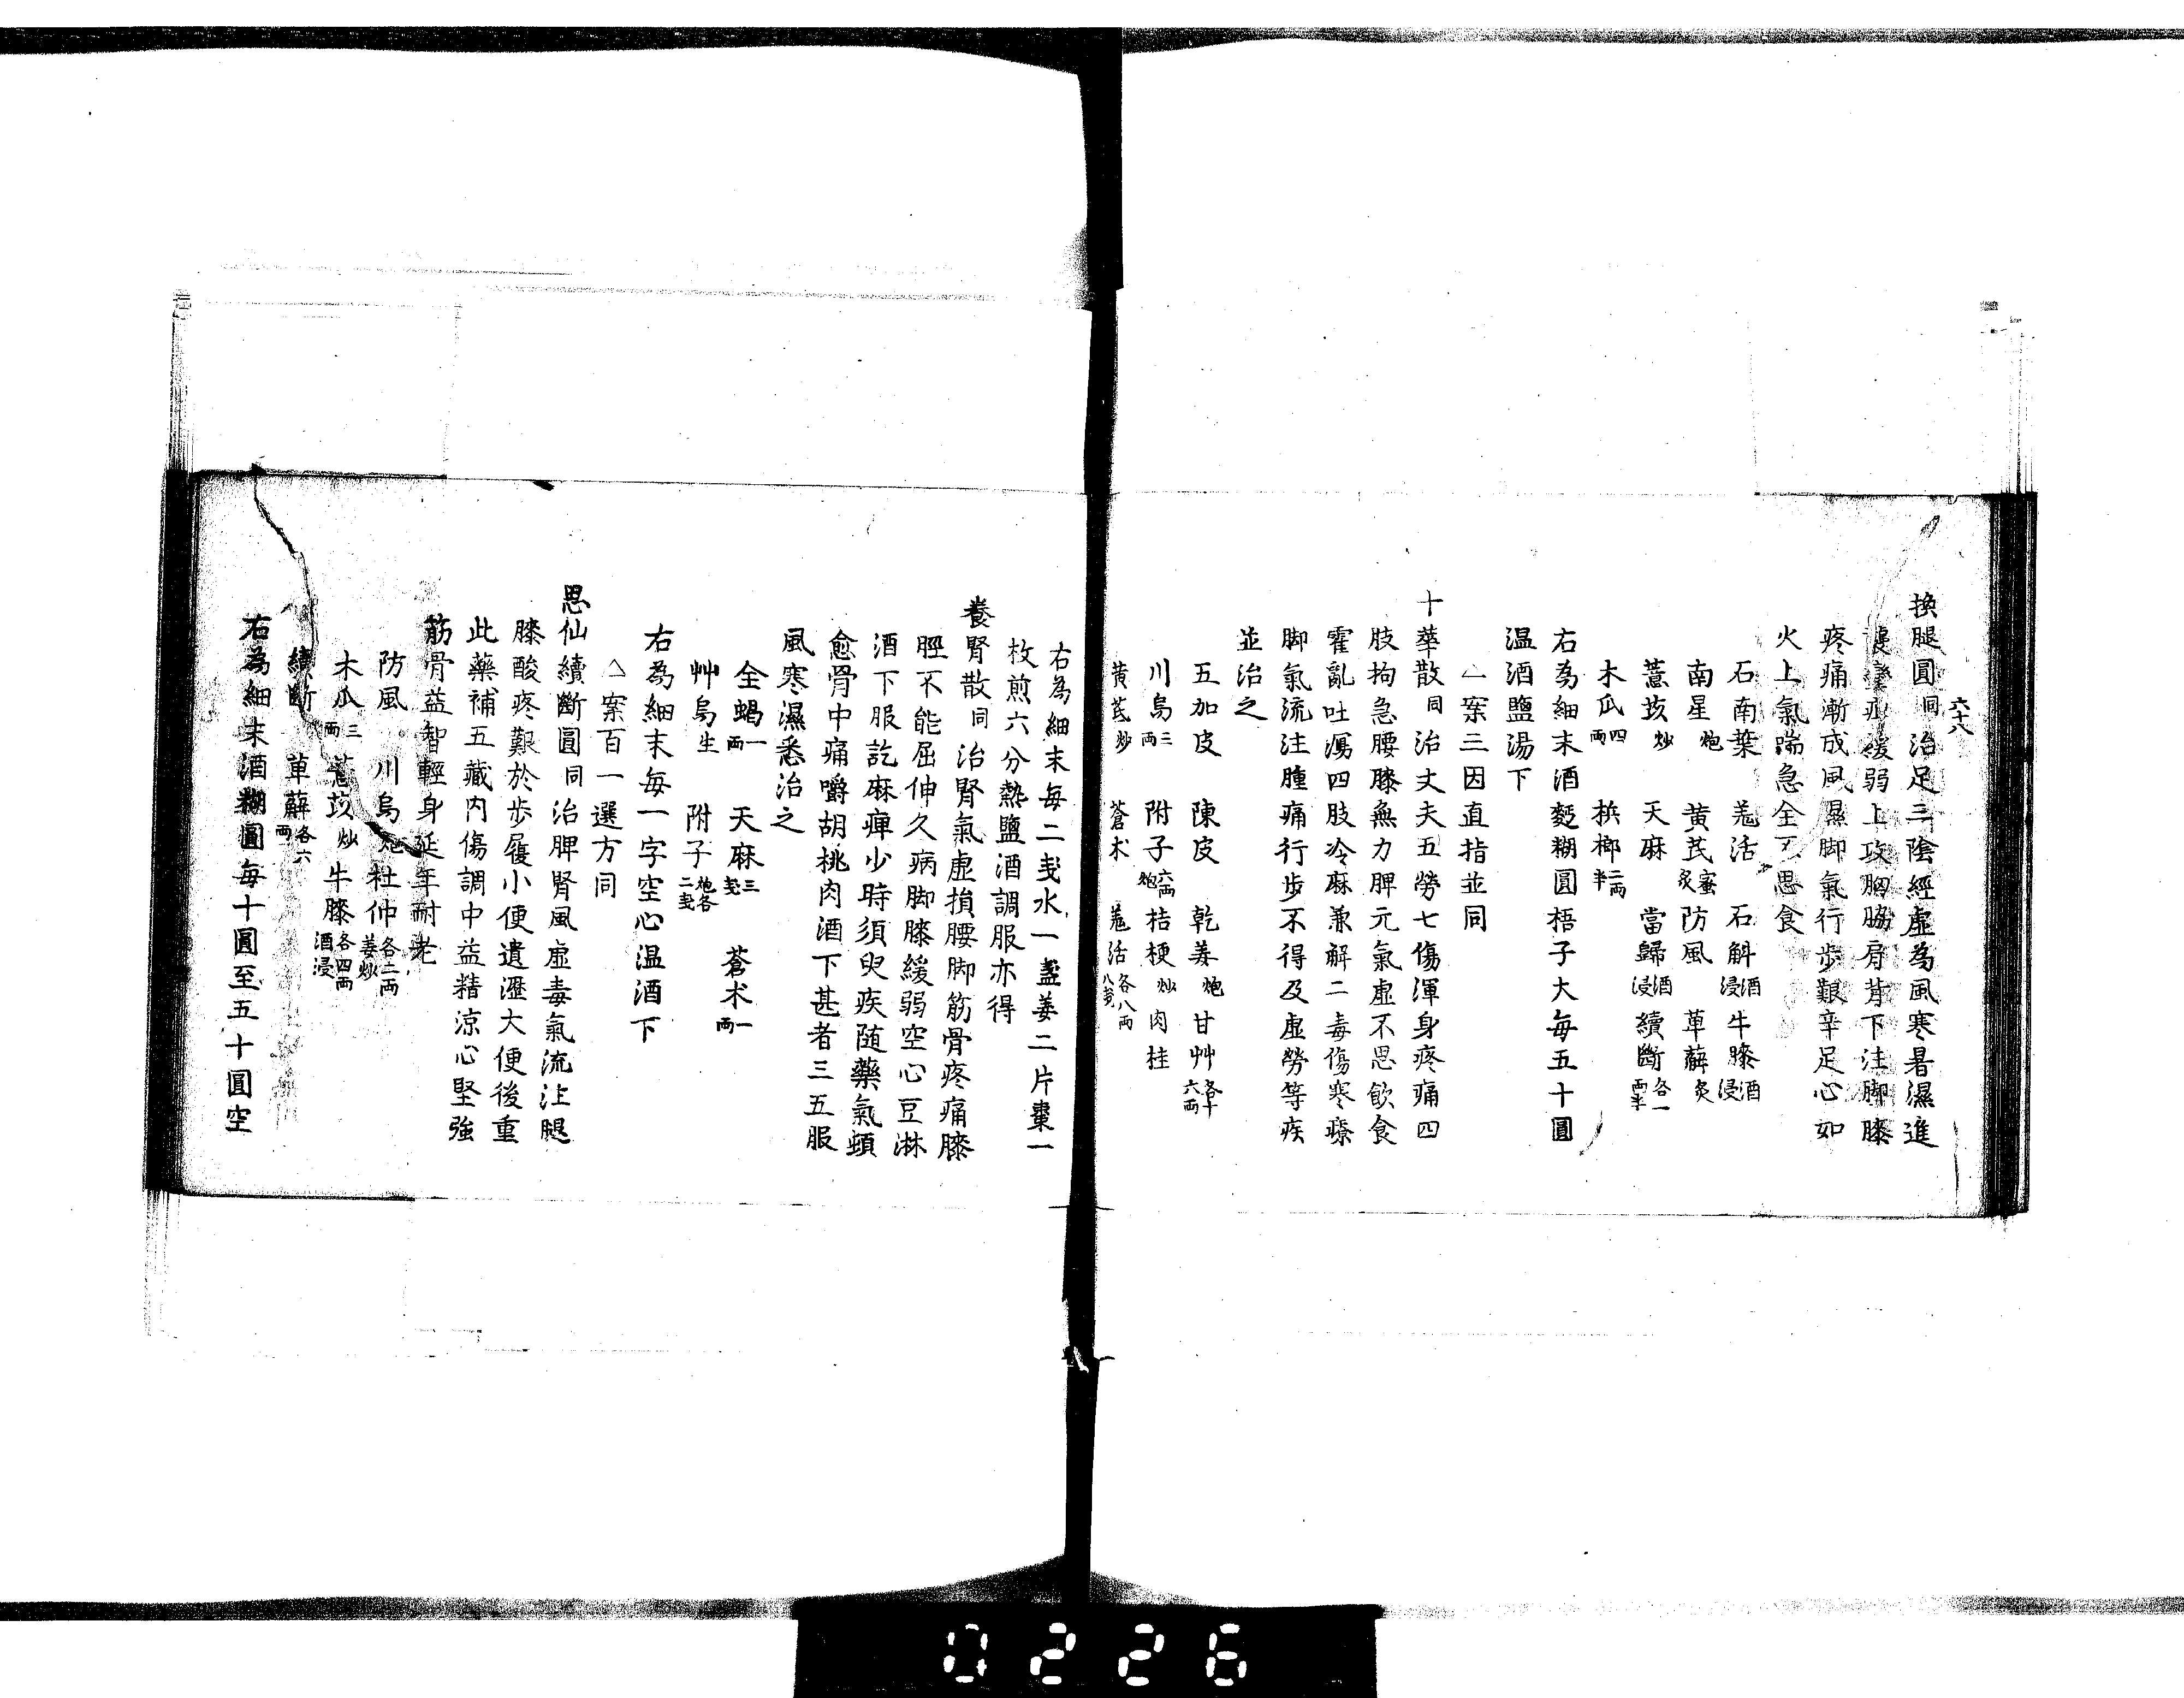 六十八
換腿圓同治足三陰經虛為風寒暑濕進
襲攣痹緩弱上攻胸脇肩背下注脚膝
疼痛漸成風濕脚氣行歩艱辛足心如
火上氣喘急全不思食
石南葉 羗活 石斛酒浸牛膝酒浸
南星炮 黄芪蜜炙防風 萆薢炙
薏苡炒 天麻 當歸酒浸續斷各一両半
木瓜四両 梹榔二両半
右為細末酒麪糊圓梧子大每五十圓
温酒鹽湯下
△案三因直指並同
十華散同治丈夫五勞七傷渾身疼痛四
肢拘急腰膝無力脾元氣虛不思飲食
霍亂吐瀉四肢冷麻兼解二毒傷寒療
脚氣流注腫痛行歩不得及虛勞等疾
並治之
五加皮 陳皮 乾姜炮甘艸各十六両
川烏三両 附子六両炮桔梗炒肉桂
黄芪炒 蒼术 羗活各八両八戔
右為細末每二戔水一盞姜二片棗一
枚煎六分熱鹽酒調服亦得
養腎散同治腎氣虛損腰脚筋骨疼痛膝
脛不能屈伸久病脚膝緩弱空心豆淋
酒下服訖麻痺少時須臾疾随藥氣頓
愈骨中痛嚼胡桃肉酒下甚者三五服
風寒濕悉治之
全蝎一両 天麻三戔 蒼术一両
艸烏生 附子炮各二戔
右為細末每一字空心温酒下
△案百一選方同
思仙續斷圓同治脾腎風虛毒氣流注腿
膝酸疼艱於歩履小便遺瀝大便後重
此藥補五藏内傷調中益精涼心堅強
筋骨益智輕身延年耐老
防風 川烏炮杜仲各二両姜炒
木瓜三両 薏苡炒牛膝各四両酒浸
續斷 萆薢各六両
右為細末酒糊圓每十圓至五十圓空
0226